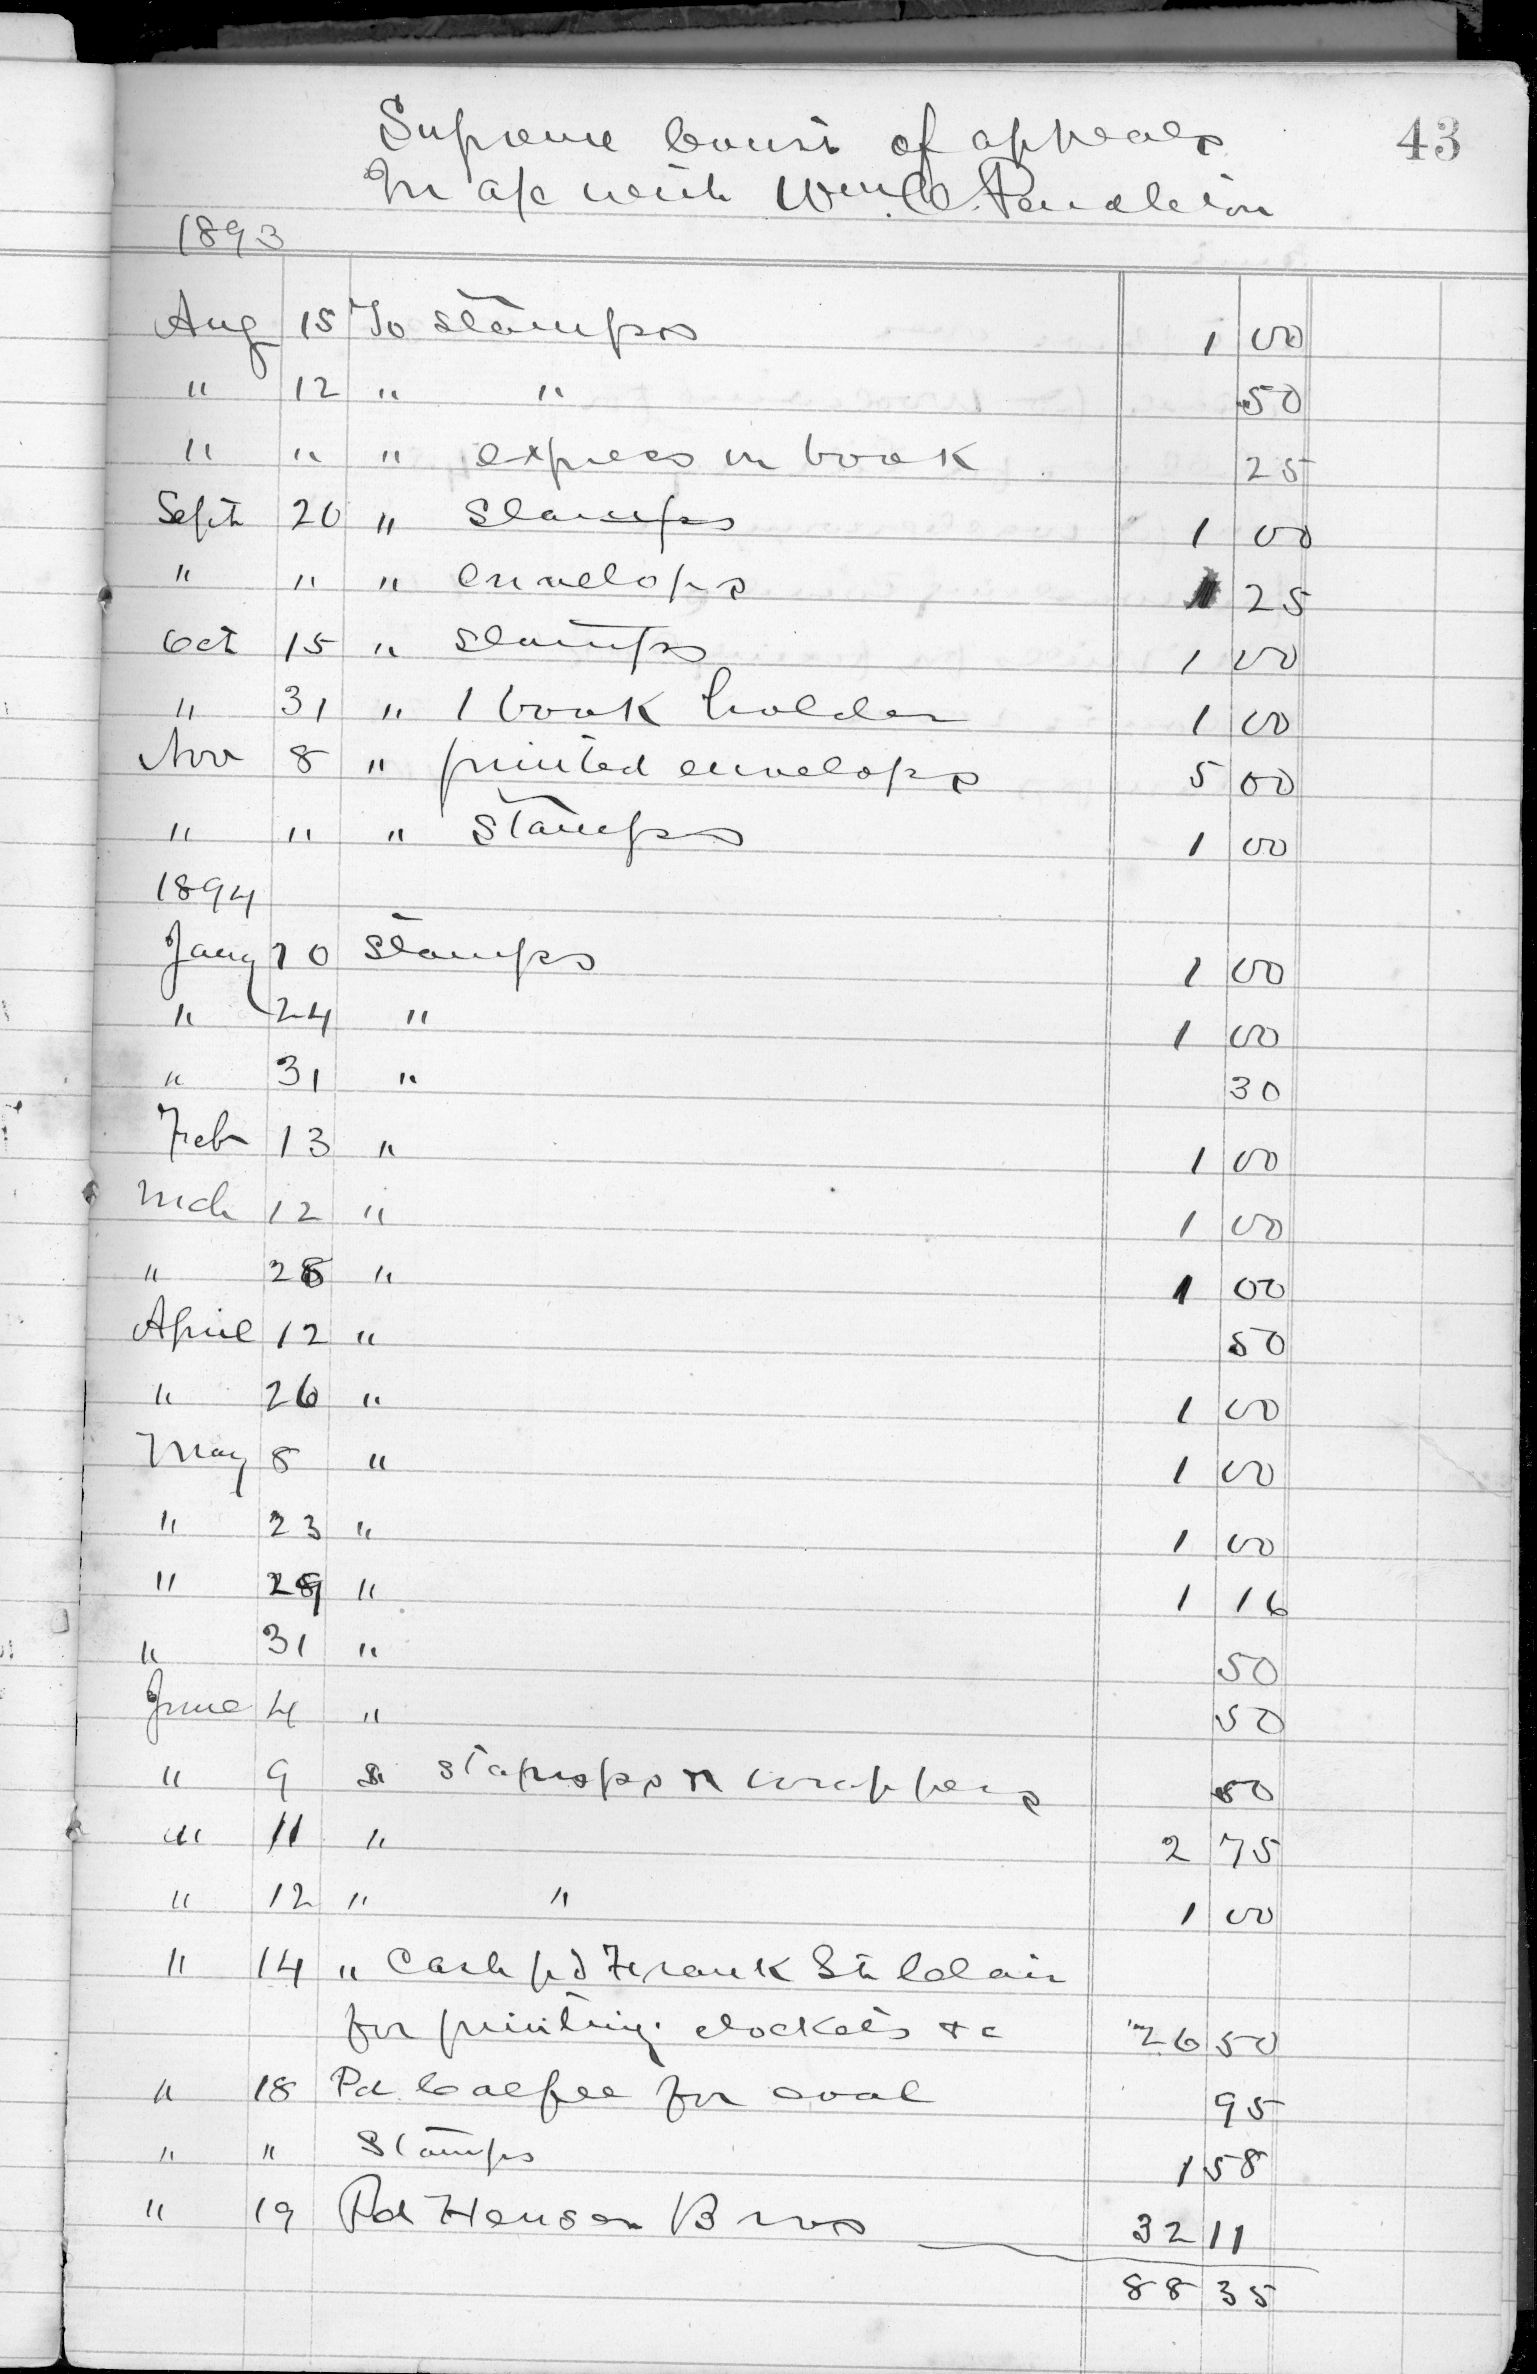 43
Supreme Court of appeals
In a/c with Wm C. Pendleton
1893
Aug 15 To Stamps 1 00
" 12 " " 50
" " " express on book 25
Sept 20 " Stamps 1 00
" " " envelops 25
Oct 15 " Stamps 1 00
" 31 " 1 book holder 1 00
Nov 8 " printed envelops 5 00
" " " Stamps 1 00
1894
Jany 10 Stamps 1 00
" 24 " 1 00
" 31 " 30
Feb 13 " 1 00
Mch 12 " 1 00
" 28 " 1 00
April 12 " 50
" 26 " 1 00
May 8 " 1 00
" 23 " 1 00
" 29 " 1 16
" 31 " 50
June 4 " 50
" 9 " stamps & wrappers 50
" 11 " 2 75
" 12 " " 1 00
" 14 " Cash pd Frank St Clair
for printing dockets &c 26 50
" 18 Pd Calfee for coal 95
" " Stamps 1 58
" 19 Pd Henson Bros 32 11
88 35